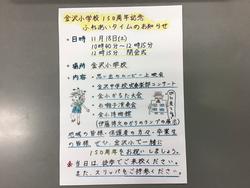 金沢小学校 150周年記念
ふれあいタイムのお知らせ
・日時 11月18日(土)
10時40分〜12時15分
12時15分 閉会式
・場所 金沢小学校
・内容
・思い出のムービー上映会
・金沢中学校吹奏楽部コンサート
・金小かるた大会
・お囃子演奏会
・金小博物館
(伊藤博文のがりのランプの展示)
地域の皆様・保護者の方々・卒業生
の皆様 ぜひ金沢小で一緒に
150周年をお祝いしましょう。
当日は、徒歩でご来校ください。
また、スリッパをご持参ください。